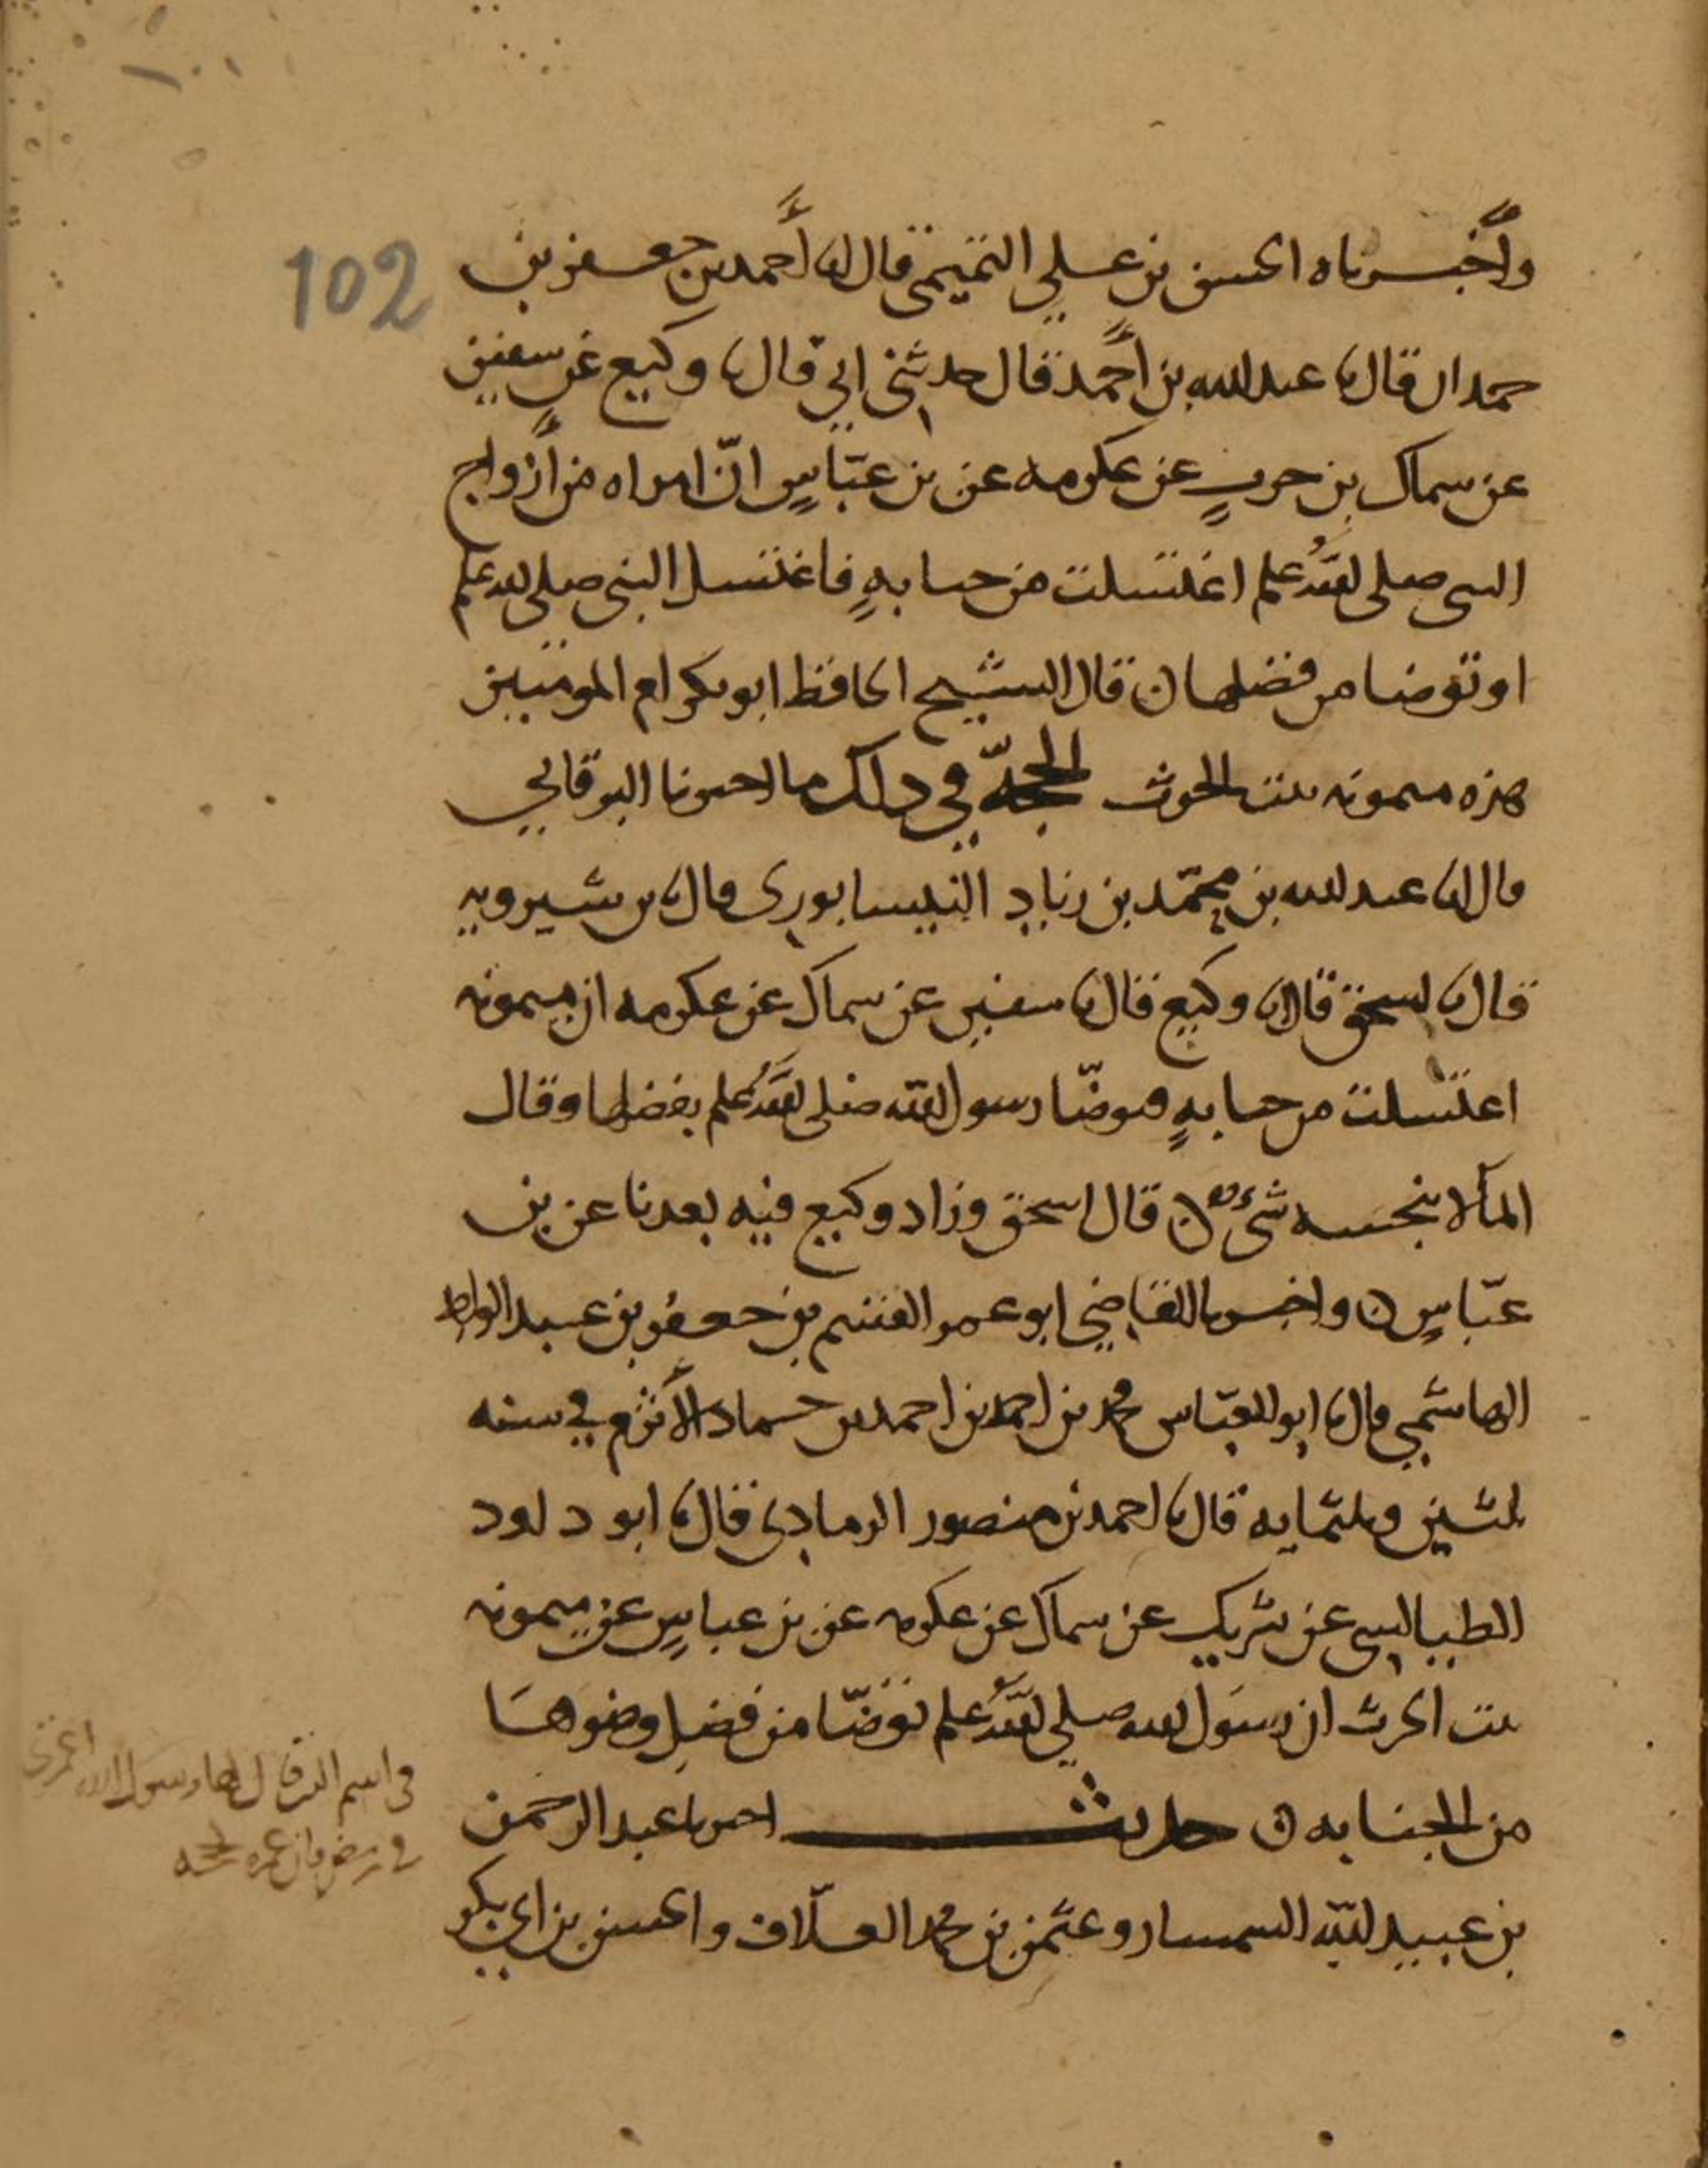 102
وأخبرناه الحسن بن علي التميمي قال انا أحمد بن جعفر بن
حمدان قال نا عبد الله بن أحمد قال حدثني ابي قال نا وكيع عن سفين
عن سماك بن حرب عن عكرمه عن بن عباس ان امراه من أزواج
النبي صلى الله علم اغتسلت من جنابه فاغتسل النبي صلى الله علم
او توضا من فضلها ن قال الشيخ الحافظ ابو بكر ام المومنين
هذه ميمونه بنت الحرث الحجة في ذلك ما اخبرنا البرقاني
قال انا عبد الله بن محمد بن زياد النيسابوري قال نا بن شيرويه
قال نا اسحق قال انا وكيع قال نا سفين عن سماك عن عكرمه ان ميمونه
اغتسلت من جنابه فتوضا رسول الله صلى الله علم بفضلها وقال
المآ لا ينجسه شيء ن قال اسحق وزاد وكيع فيه بعدنا عن بن
عباس ن واخبرنا القاضي ابو عمر القسم بن جعفر بن عبد الواحد
الهاشمي قال نا ابو العباس محمد بن احمد بن احمد بن حماد الأثرم في سنه
ثلثين وثلثمايه قال نا احمد بن منصور الرمادي قال نا ابو داود
الطيالسي عن شريك عن سماك عن عكرمه عن بن عباس عن ميمونه
بنت الحرث ان رسول الله صلى الله علم توضا من فضل وضوها
من الجنابه ن حديث اخبرنا عبد الرحمن
بن عبيد الله السمسار وعثمن بن محمد العلاف والحسن بن ابي بكر
في اسم التي قال لها رسول الله اعتمري
في رمضن فان عمره فيه